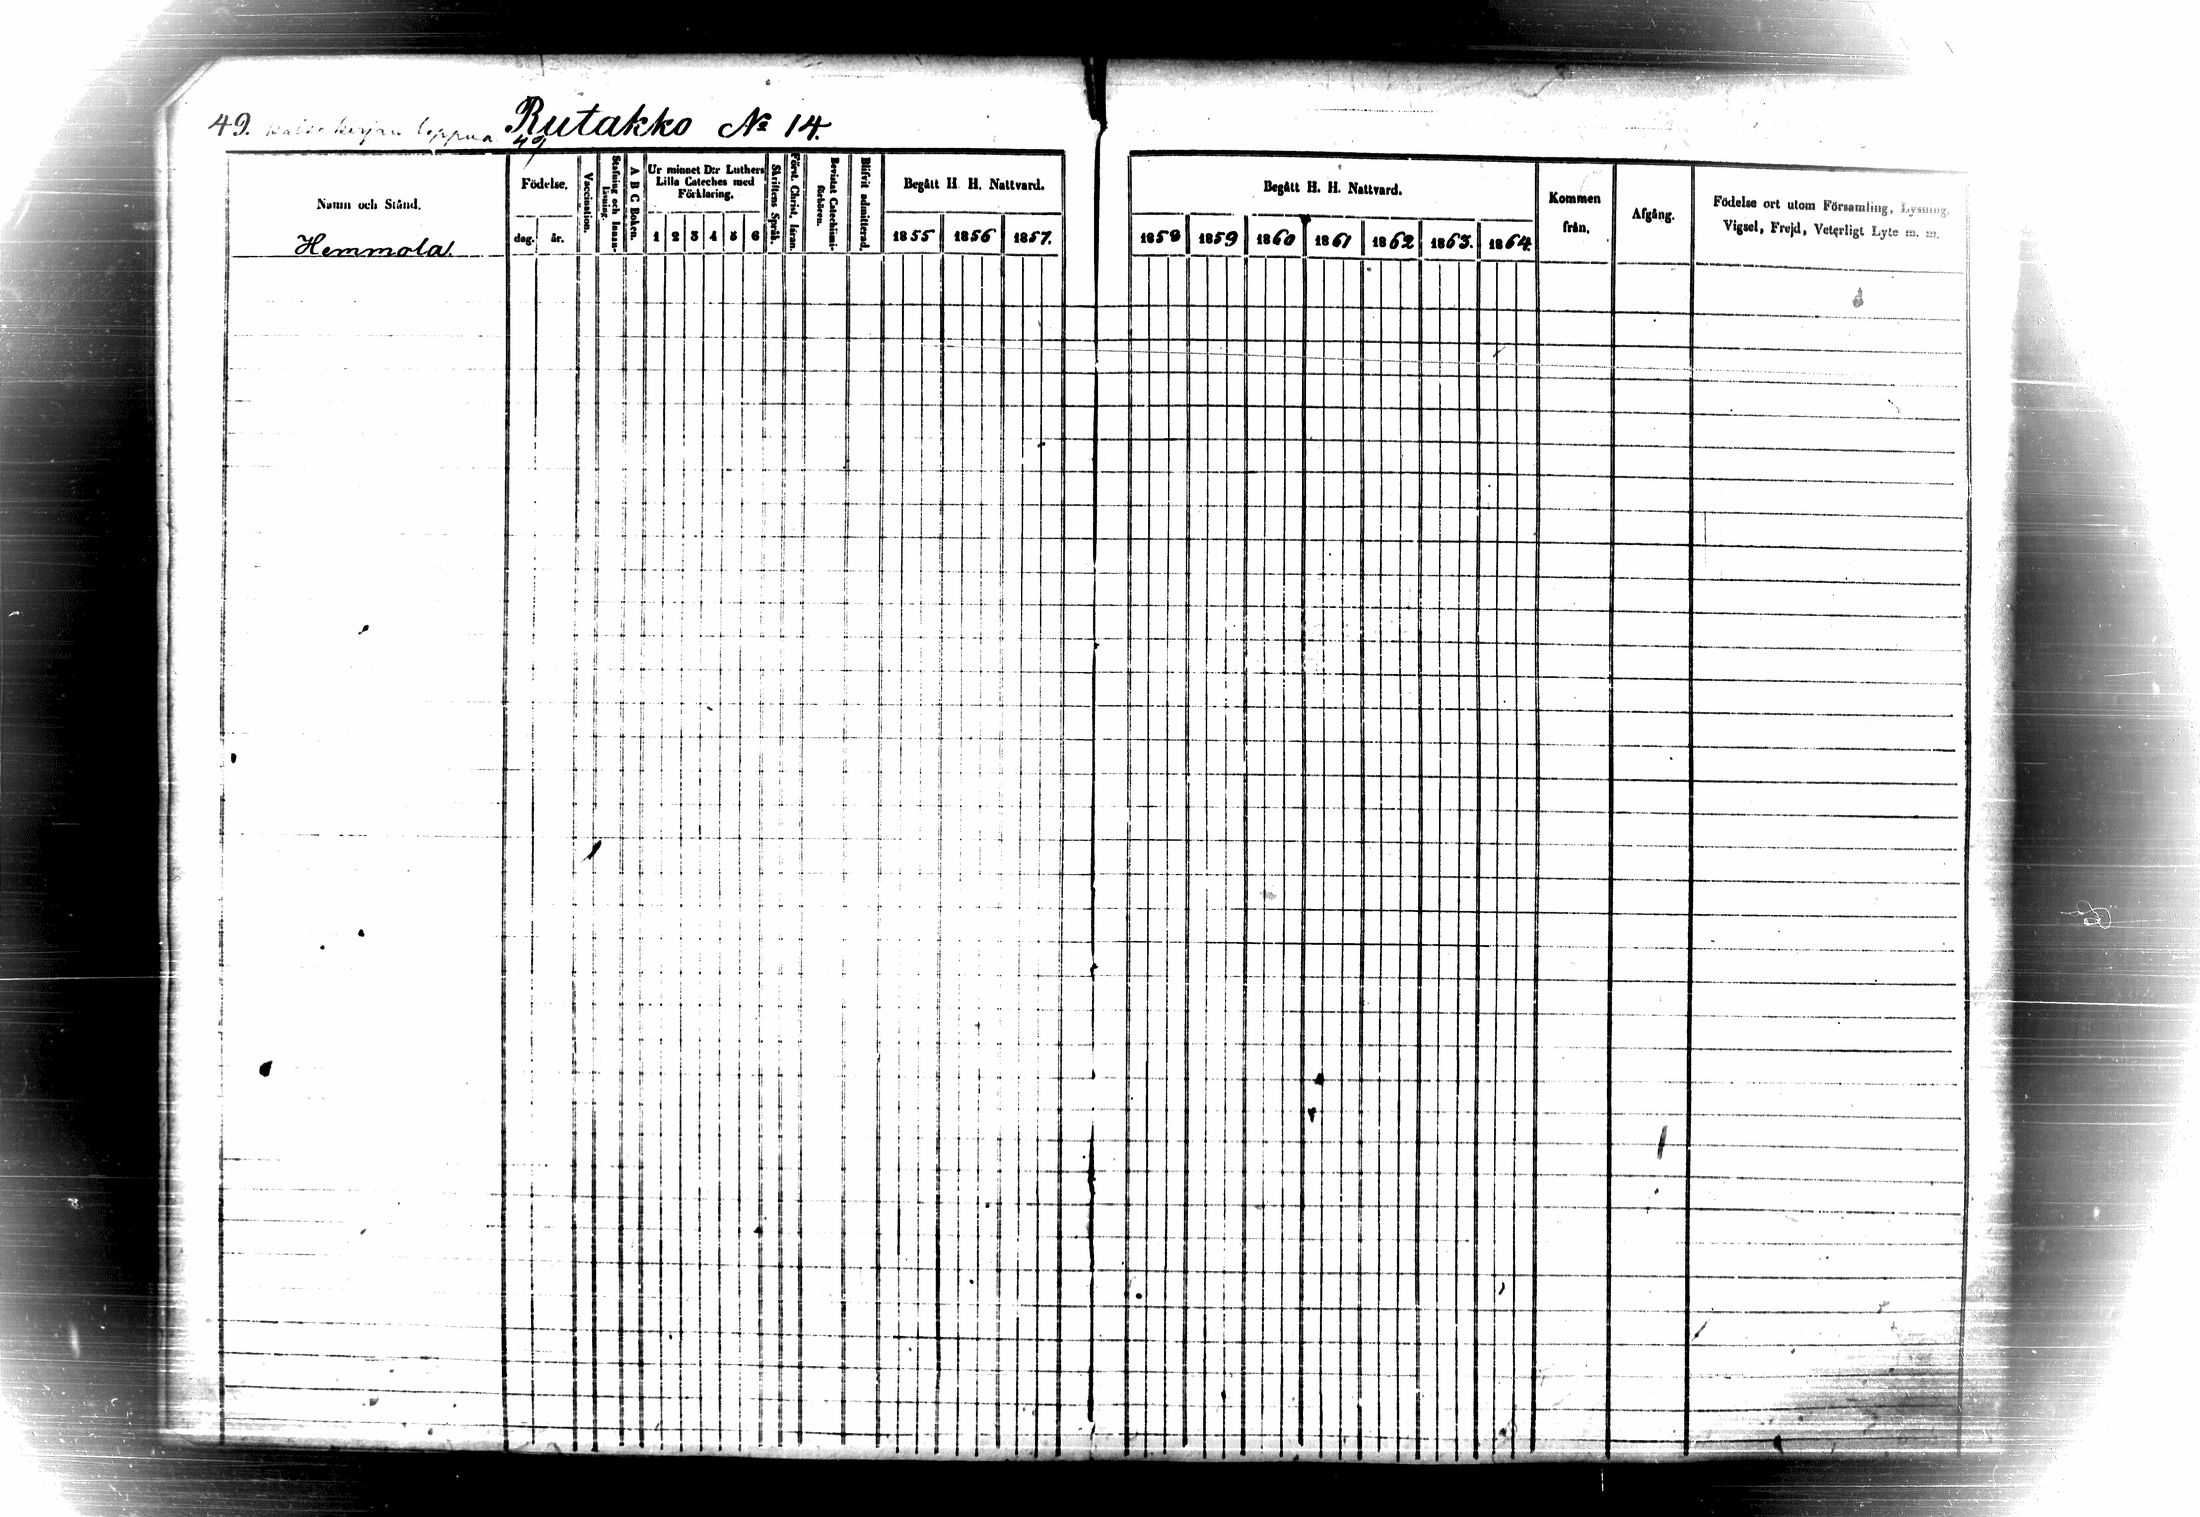 49. kirjan loppua Rutakko № 14.
49
Namn och Stånd.
Hemmola.
Födelse.
dag. år.
Vaccination.
Stafning och Innan-Läsning.
A B C Boken.
Ur minnet D:r Luthers
Lilla Cateches med
Förklaring.
1 2 3 4 5 6
Skriftens Språk.
Först. Christ. läran.
Bevistat Catechismi-förhören.
Blifvit admitterad.
Begått H. H. Nattvard.
1855 1856 1857.
Begått H. H. Nattvard.
1858 1859 1860 1861 1862 1863. 1864.
Kommen
från.
Afgång.
Födelse ort utom Församling, Lysning,
Vigsel, Frejd, Veterligt Lyte m. m.